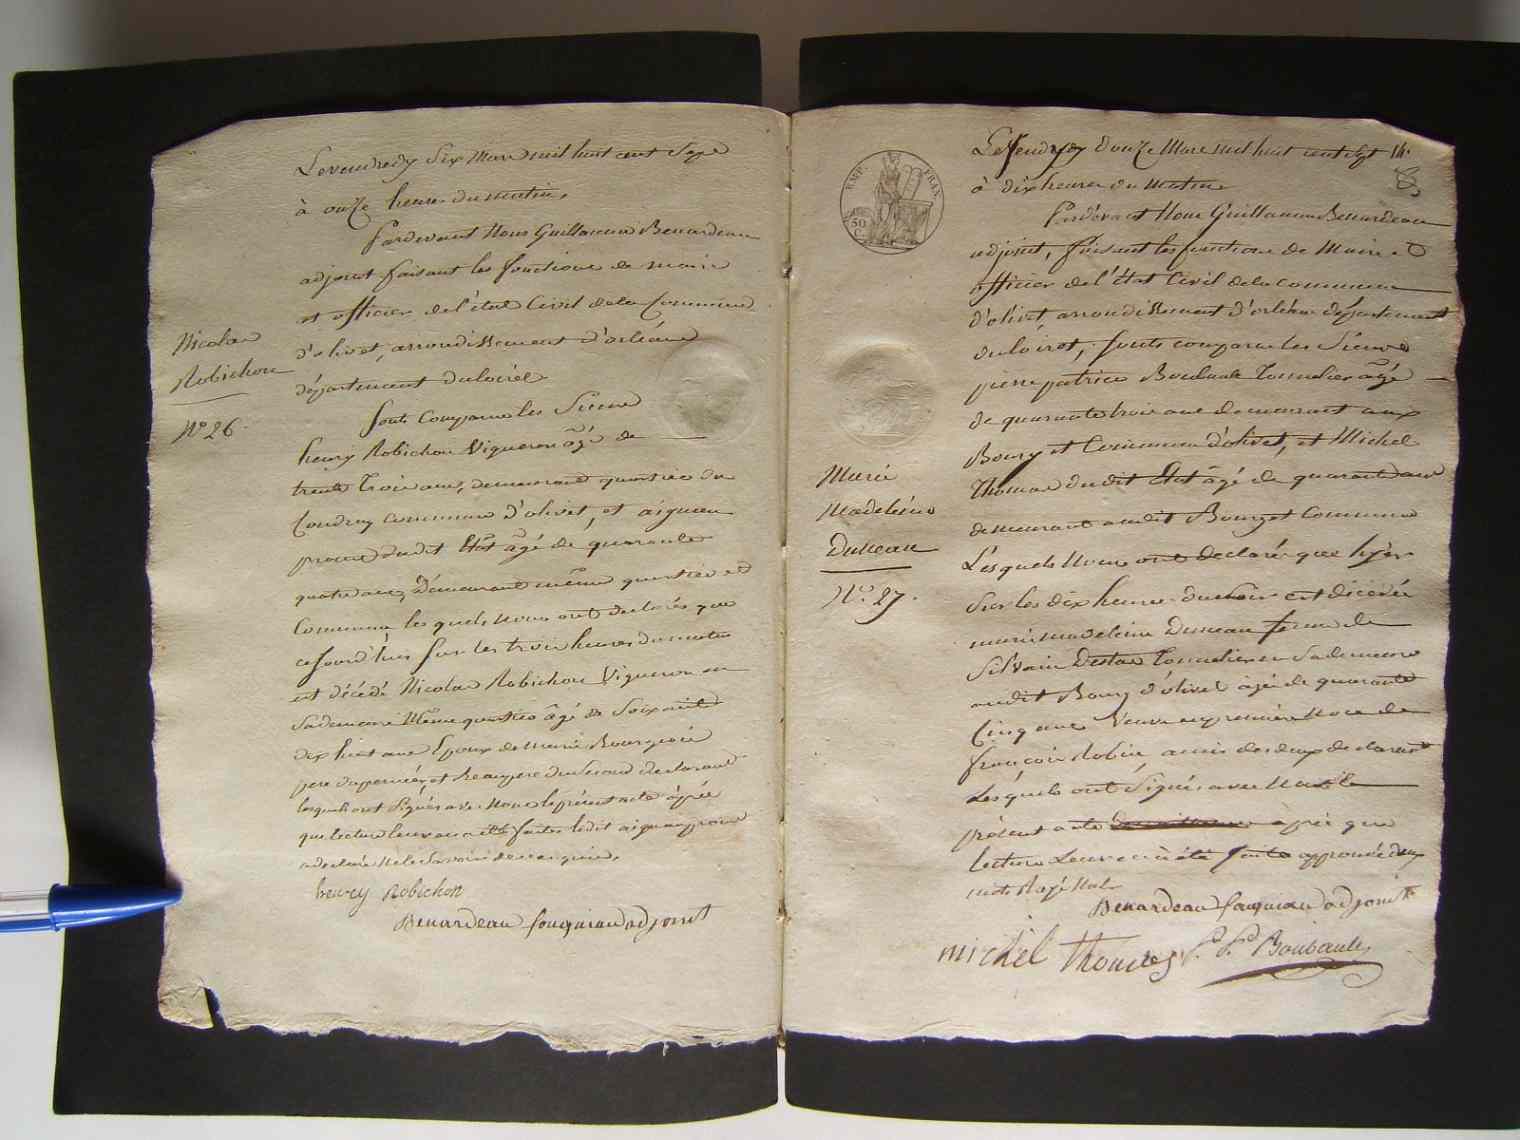 Levendredy Six Mars mil huit cent Sept
à onze heures du matin,
Pardevant Nous Guillaume Benardeau
adjoint faisant les fonctions de maire
et officier de l'état Civil dela Commune
d'olivet, arrondissement d'orléans
département duloiret
Nicolas
Robichon
N° 26.
Sont Comparus les Sieurs
henry Robichon Vigneron âgé de
trente trois ans, demeurant quartier du
Coudray commune d'olivet, et aignan
proust dudit Etat âgé de quarante
quatre ans, demeurant même quartier et
Commune, les quels nous ont declarés que
cejourd'hui Sur les trois heures du matin
est décédé Nicolas Robichon Vigneron en
Sa demeure Même quartier âgé de Soixante
dix huit ans Epoux de Marie Bourgeois
pere du premier, et beaupere du Second declarant
lesquels ont Signés avec Nous le présent acte après
que lecture leur en a été faites ledit aignan proust
a declaré Ne le Savoir de ce enquis.
henry Robichon
Benardeau fouqueau adjoint
EMP. FRAN.
50
C.
Le Vendredy douze Mars mil huit cent Sept 14.
à dix heures du Matin
Pardevant Nous Guillaume Benardeau
adjoint, faisant les fonctions de Maire et
officier de l'état Civil dela commune
d'olivet, arrondissement d'orléans département
du loiret, Sont comparus les Sieurs
pierre patrice Boubault Tonnelier âgé
de quarante trois ans demeurant aux
Bourg et Commune d'olivet, et Michel
Thomas dudit Etat âgé de quarante ans
demeurant audit Bourg et Commune
Marie
Madeleine
Duneau
N°. 27.
Lesquels Nous ont declarés que hyer
Sur les dix heures du Soir est décédée
marie madeleine Duneau femme de
Silvain Destas Tonnelier en Sa demeure
audit Bourg d'olivet âgée de quarante
Cinq ans Veuve en premiere Noce de
françois Robin, amis des deux declarants
Lesquels ont Signés avec Nous le
présent acte après que
lecture Leur en a été faite approuvé deux
mots Rayé Nuls
Benardeau fouqueau adjoint
michel Thomas P. P. Boubault